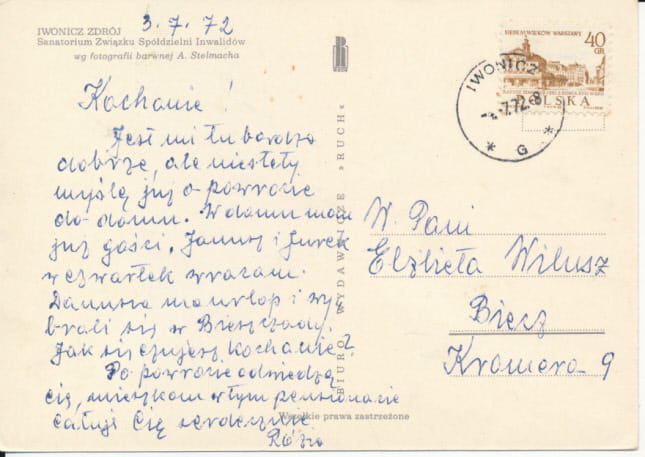 3.7.72
IWONICZ ZDRÓJ
Sanatorium Związku Spółdzielni Inwalidów
wg fotografii barwnej A. Stelmacha
Kochanie!
Jest mi tu bardzo
dobrze, ale niestety
myślę już o powrocie
do domu. W domu mam
już gości, Janusz i Jurek
w czwartek wracam.
Danusia ma urlop i wy
brali się w Bieszczady.
Jak się czujesz kochanie?
Po powrocie odwiedzę
Cię, mieszkam w tym pensjonacie
całuję Cię serdecznie
Rózia
BIURO WYDAWNICZE »RUCH«
Wszelkie prawa zastrzeżone
SIEDEM WIEKÓW WARSZAWY
40
GR
POLSKA
IWONICZ
7.72.-8
* G *
W. Pani
Elżbieta Wilusz
Biecz
Kromera 9